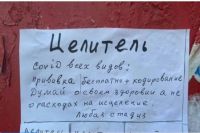 Целитель
Covid всех видов:
прививка бесплатно + кодирование
Думай о своём здоровии а не
о расходах на исцеление.
Любая стадия